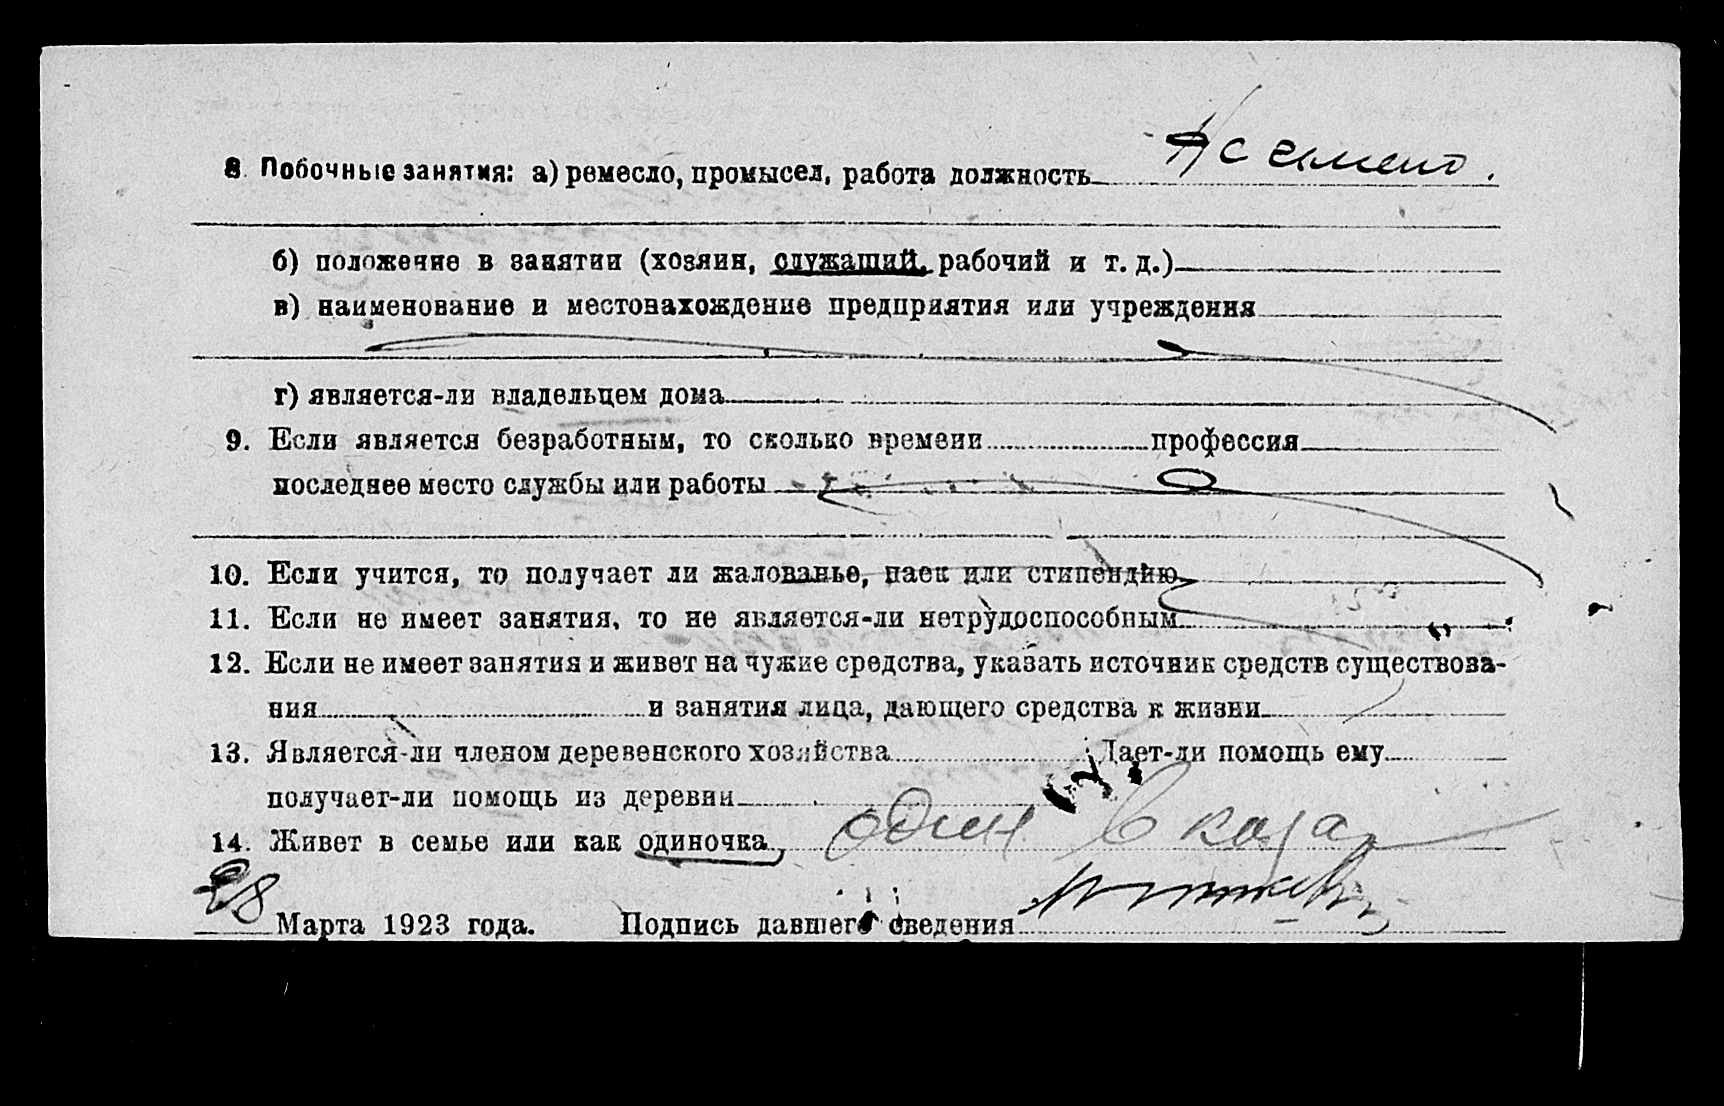 8. Побочные занятия: а) ремесло, промысел, работа должность
б) положение в занятии (хозяин, служащий, рабочий и т. д.)
в) наименование и местонахождение предприятия или учреждения
г) является-ли владельцем дома
9. Если является безработным, то сколько времени профессия
последнее место службы или работы
10. Если учится, то получает ли жалованье, паек или стипендию
11. Если не имеет занятия, то не является-ли нетрудоспособным
12. Если не имеет занятия и живет на чужие средства, указать источник средств существова-
ния и занятия лица, дающего средства к жизни
13. Является-ли членом деревенского хозяйства Дает-ли помощь ему
получает-ли помощь из деревни
14. Живет в семье или как одиночка один
28 Марта 1923 года. Подпись давшего сведения